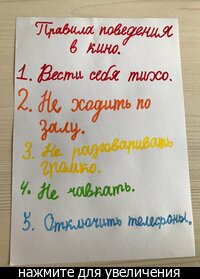 Правила поведения
в кино.
1. Вести себя тихо.
2. Не ходить по
залу.
3. Не разговаривать
громко.
4. Не чавкать.
5. Отключить телефоны.
нажмите для увеличения